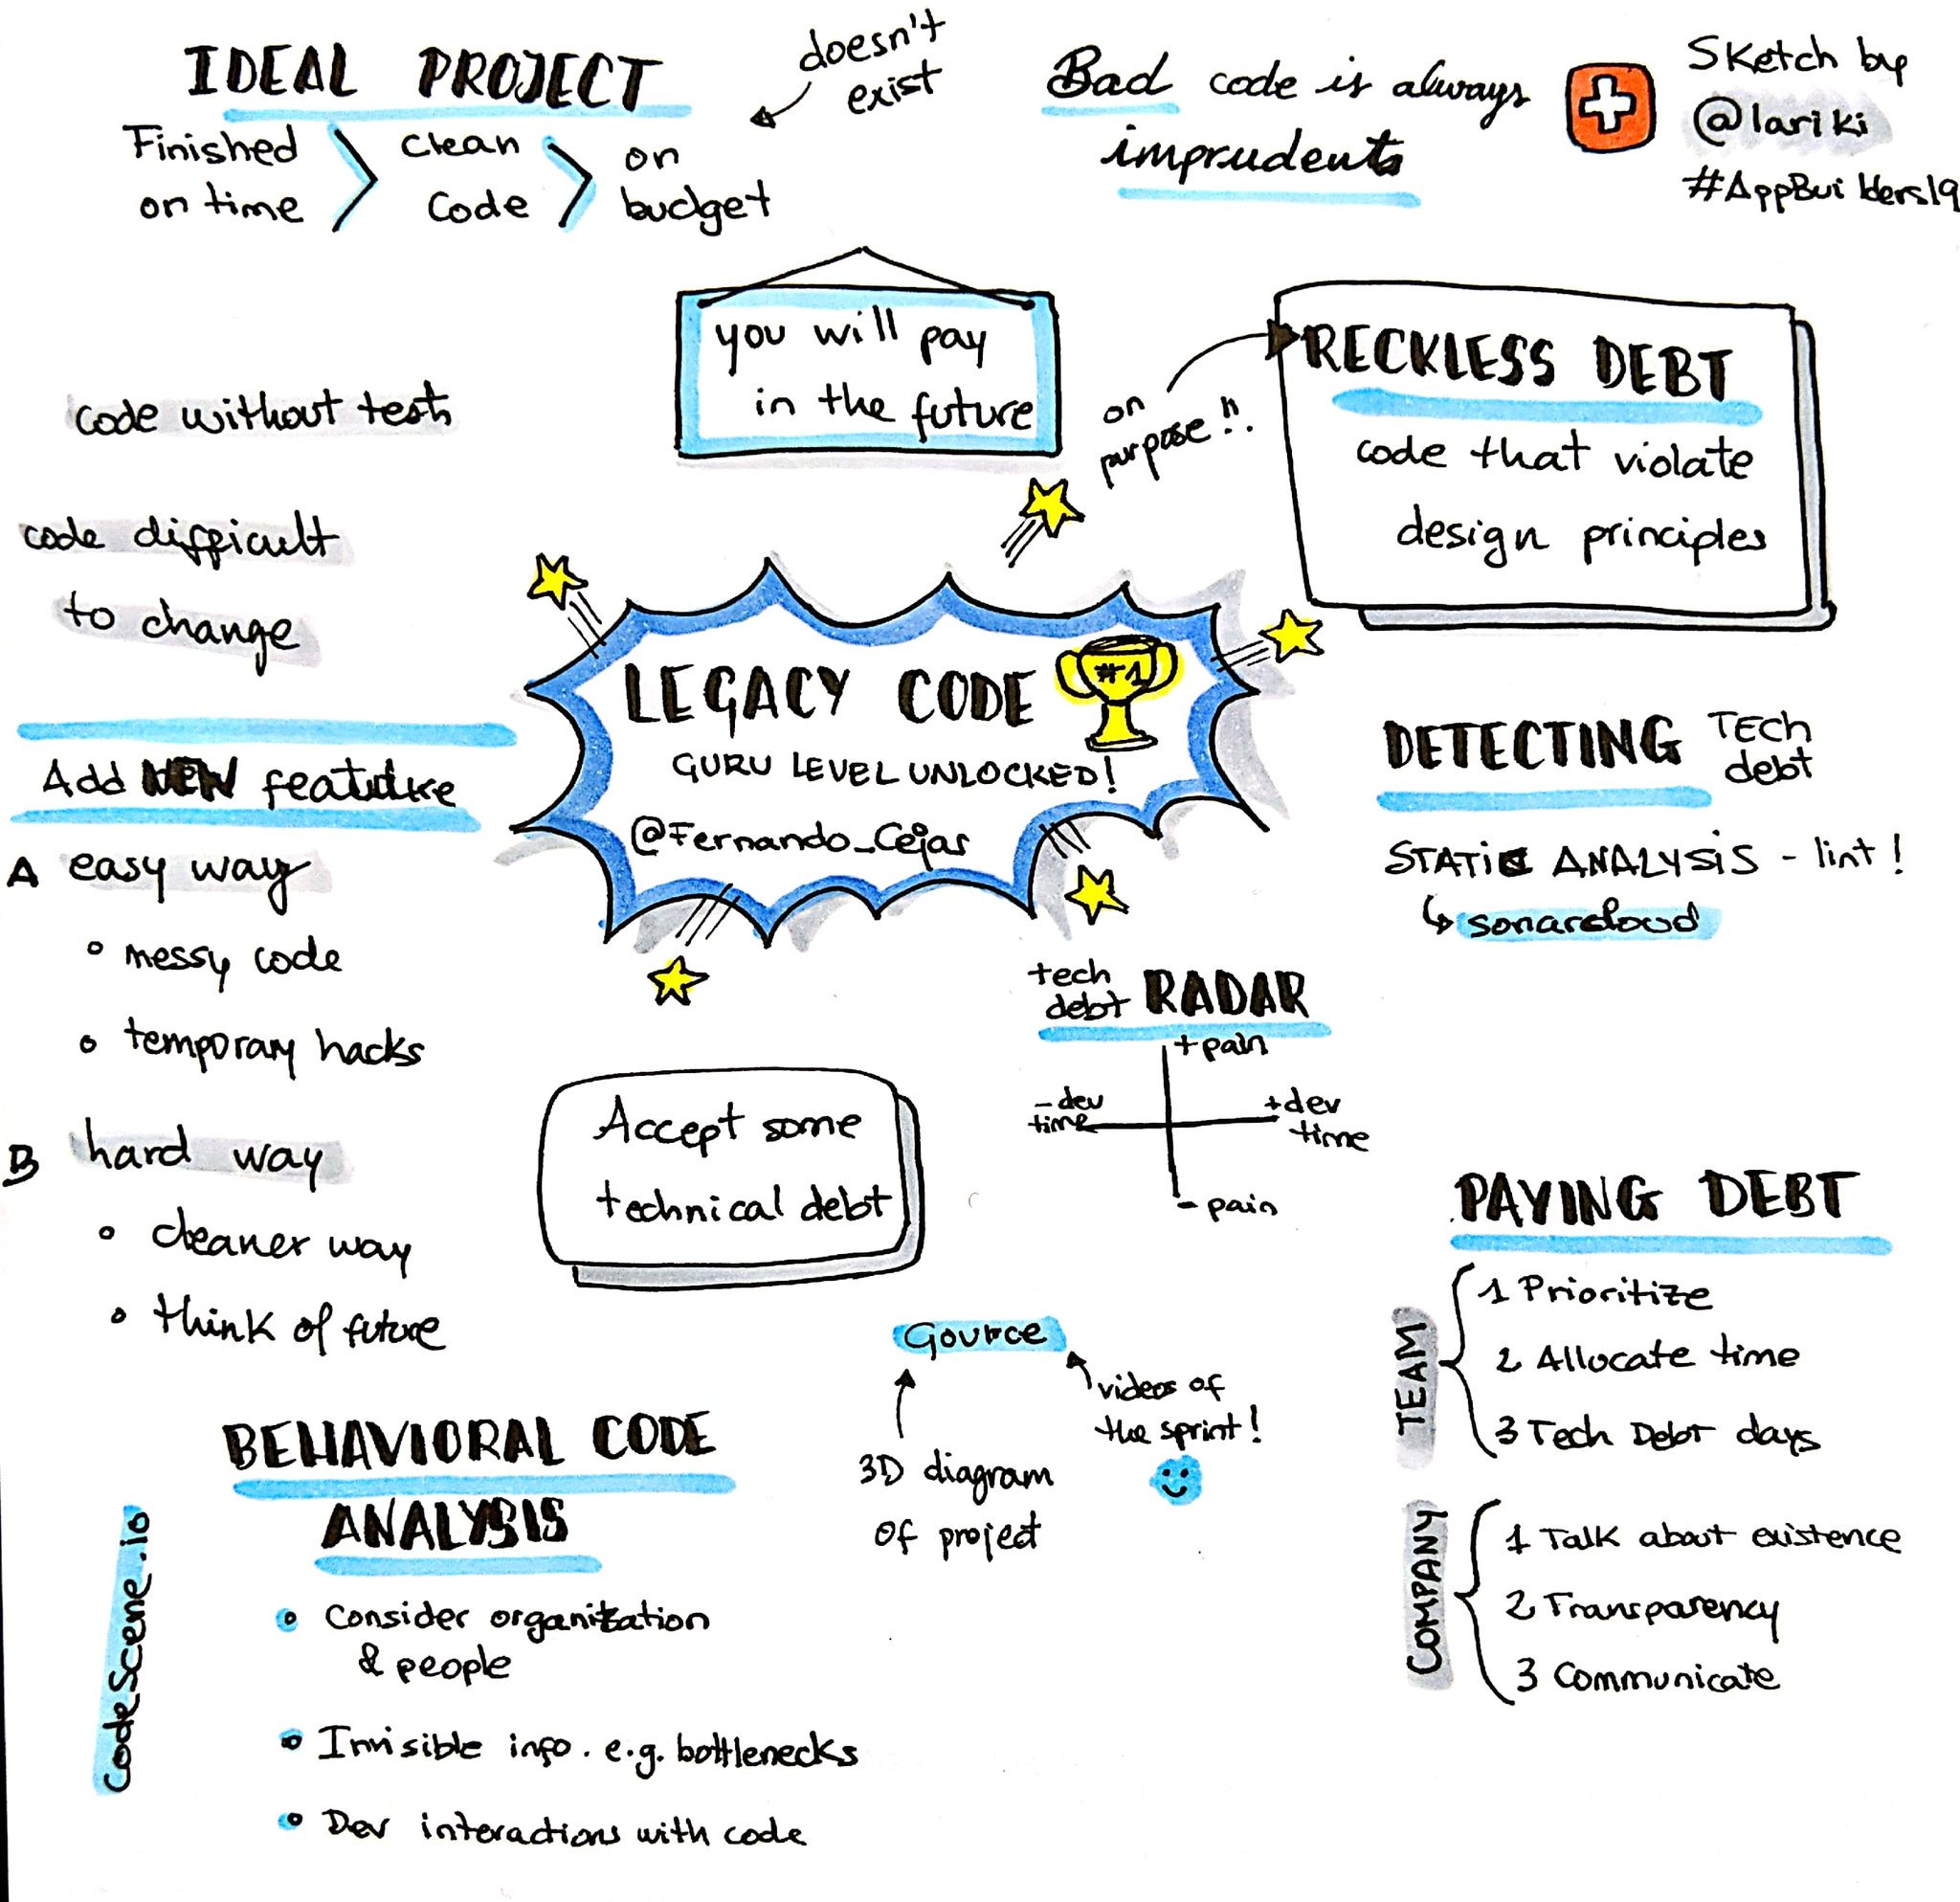 IDEAL PROJECT
doesn't
exist
Finished
on time
clean
code
on
budget
Bad code is always
imprudent
Sketch by
@lariki
#AppBuilders19
you will pay
in the future
on
purpose!!
RECKLESS DEBT
code that violate
design principles
code without tests
code difficult
to change
LEGACY CODE
#1
GURU LEVEL UNLOCKED!
@Fernando_Cejas
Add NEW feature
A easy way
messy code
temporary hacks
B hard way
cleaner way
think of future
DETECTING TECH
debt
STATIC ANALYSIS - lint!
sonarcloud
tech
debt RADAR
+ pain
- dev
time
+ dev
time
- pain
Accept some
technical debt
Gource
videos of
the sprint!
3D diagram
of project
PAYING DEBT
TEAM
1 Prioritize
2 Allocate time
3 Tech Debt days
COMPANY
1 Talk about existence
2 Transparency
3 Communicate
BEHAVIORAL CODE
ANALYSIS
CodeScene.io
Consider organization
& people
Invisible info. e.g. bottlenecks
Dev interactions with code